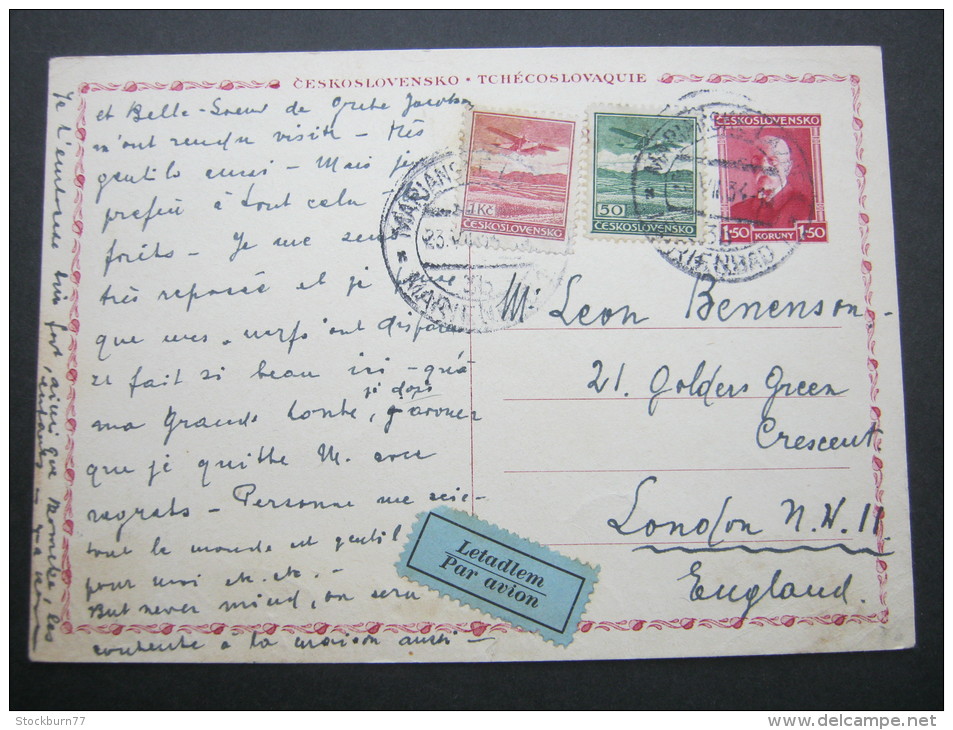 ČESKOSLOVENSKO • TCHÉCOSLOVAQUIE
et Belle-Soeur de Grete Jacobson
m'ont rendu visite – très
gentils aussi – Mais je
préfère à tout cela
forêts – Je me sens
très reposée et je
que mes nerfs ont disparu
Il fait si beau ici – qu'à
ma grande honte, je dois
avouer
que je quitte M. avec
regrets – Personne me
tout le monde est gentil
pour moi etc. etc. –
But never mind, on sera
contente à la maison aussi –
Je t'embrasse bien fort, ainsi que
les
enfants –
1 Kč
ČESKOSLOVENSKO
50
ČESKOSLOVENSKO
ČESKOSLOVENSKO
1·50 KORUNY 1·50
MARIÁNSKÉ
23.
MARIENBAD
VII.34
MARIENBAD
Mr Leon Benenson –
21. Golders Green
Crescent
London N.W.11
England.
Letadlem
Par avion
Stockburn77
www.delcampe.net